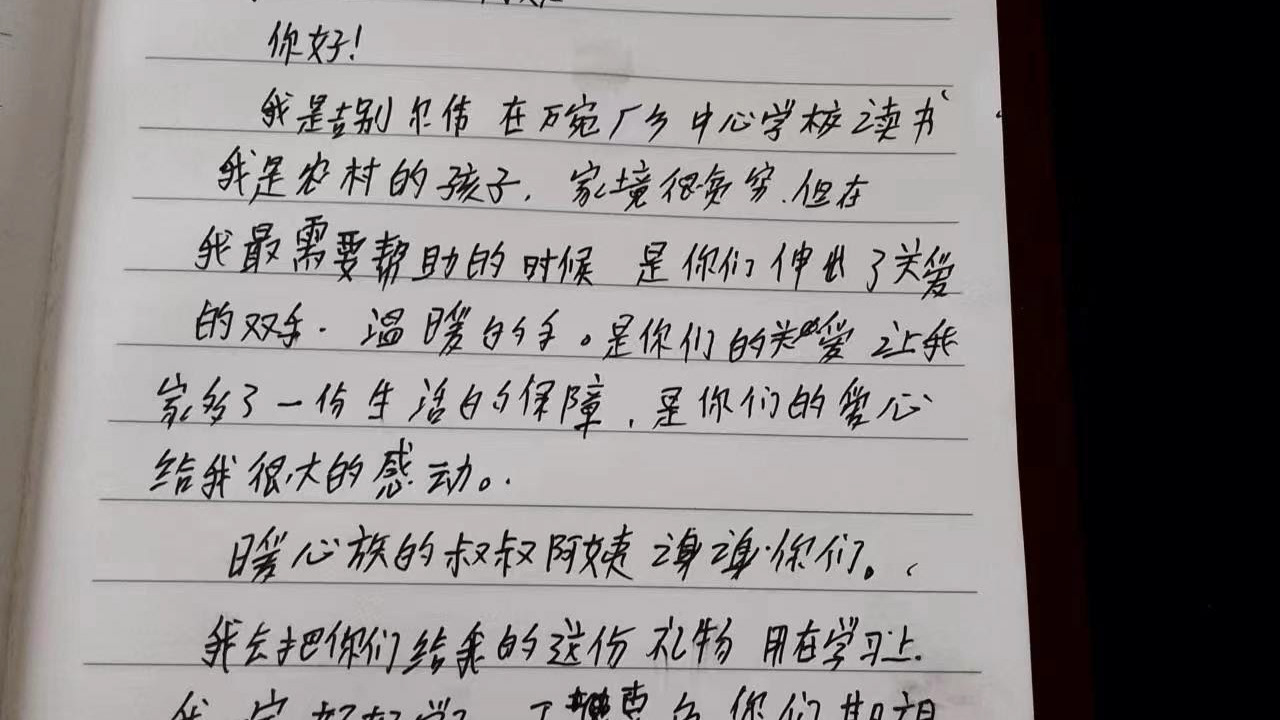 你好！
我是吉别尔伟 在万宛厂乡中心学校读书
我是农村的孩子，家境很贫穷.但在
我最需要帮助的时候 是你们伸出了关爱
的双手. 温暖的手。是你们的关爱 让我
家多了一份生活的保障，是你们的爱心
给我很大的感动。
暖心族的叔叔阿姨 谢谢你们。
我会把你们给我的这份礼物 用在学习上.
我 定好好学 不 你们期望